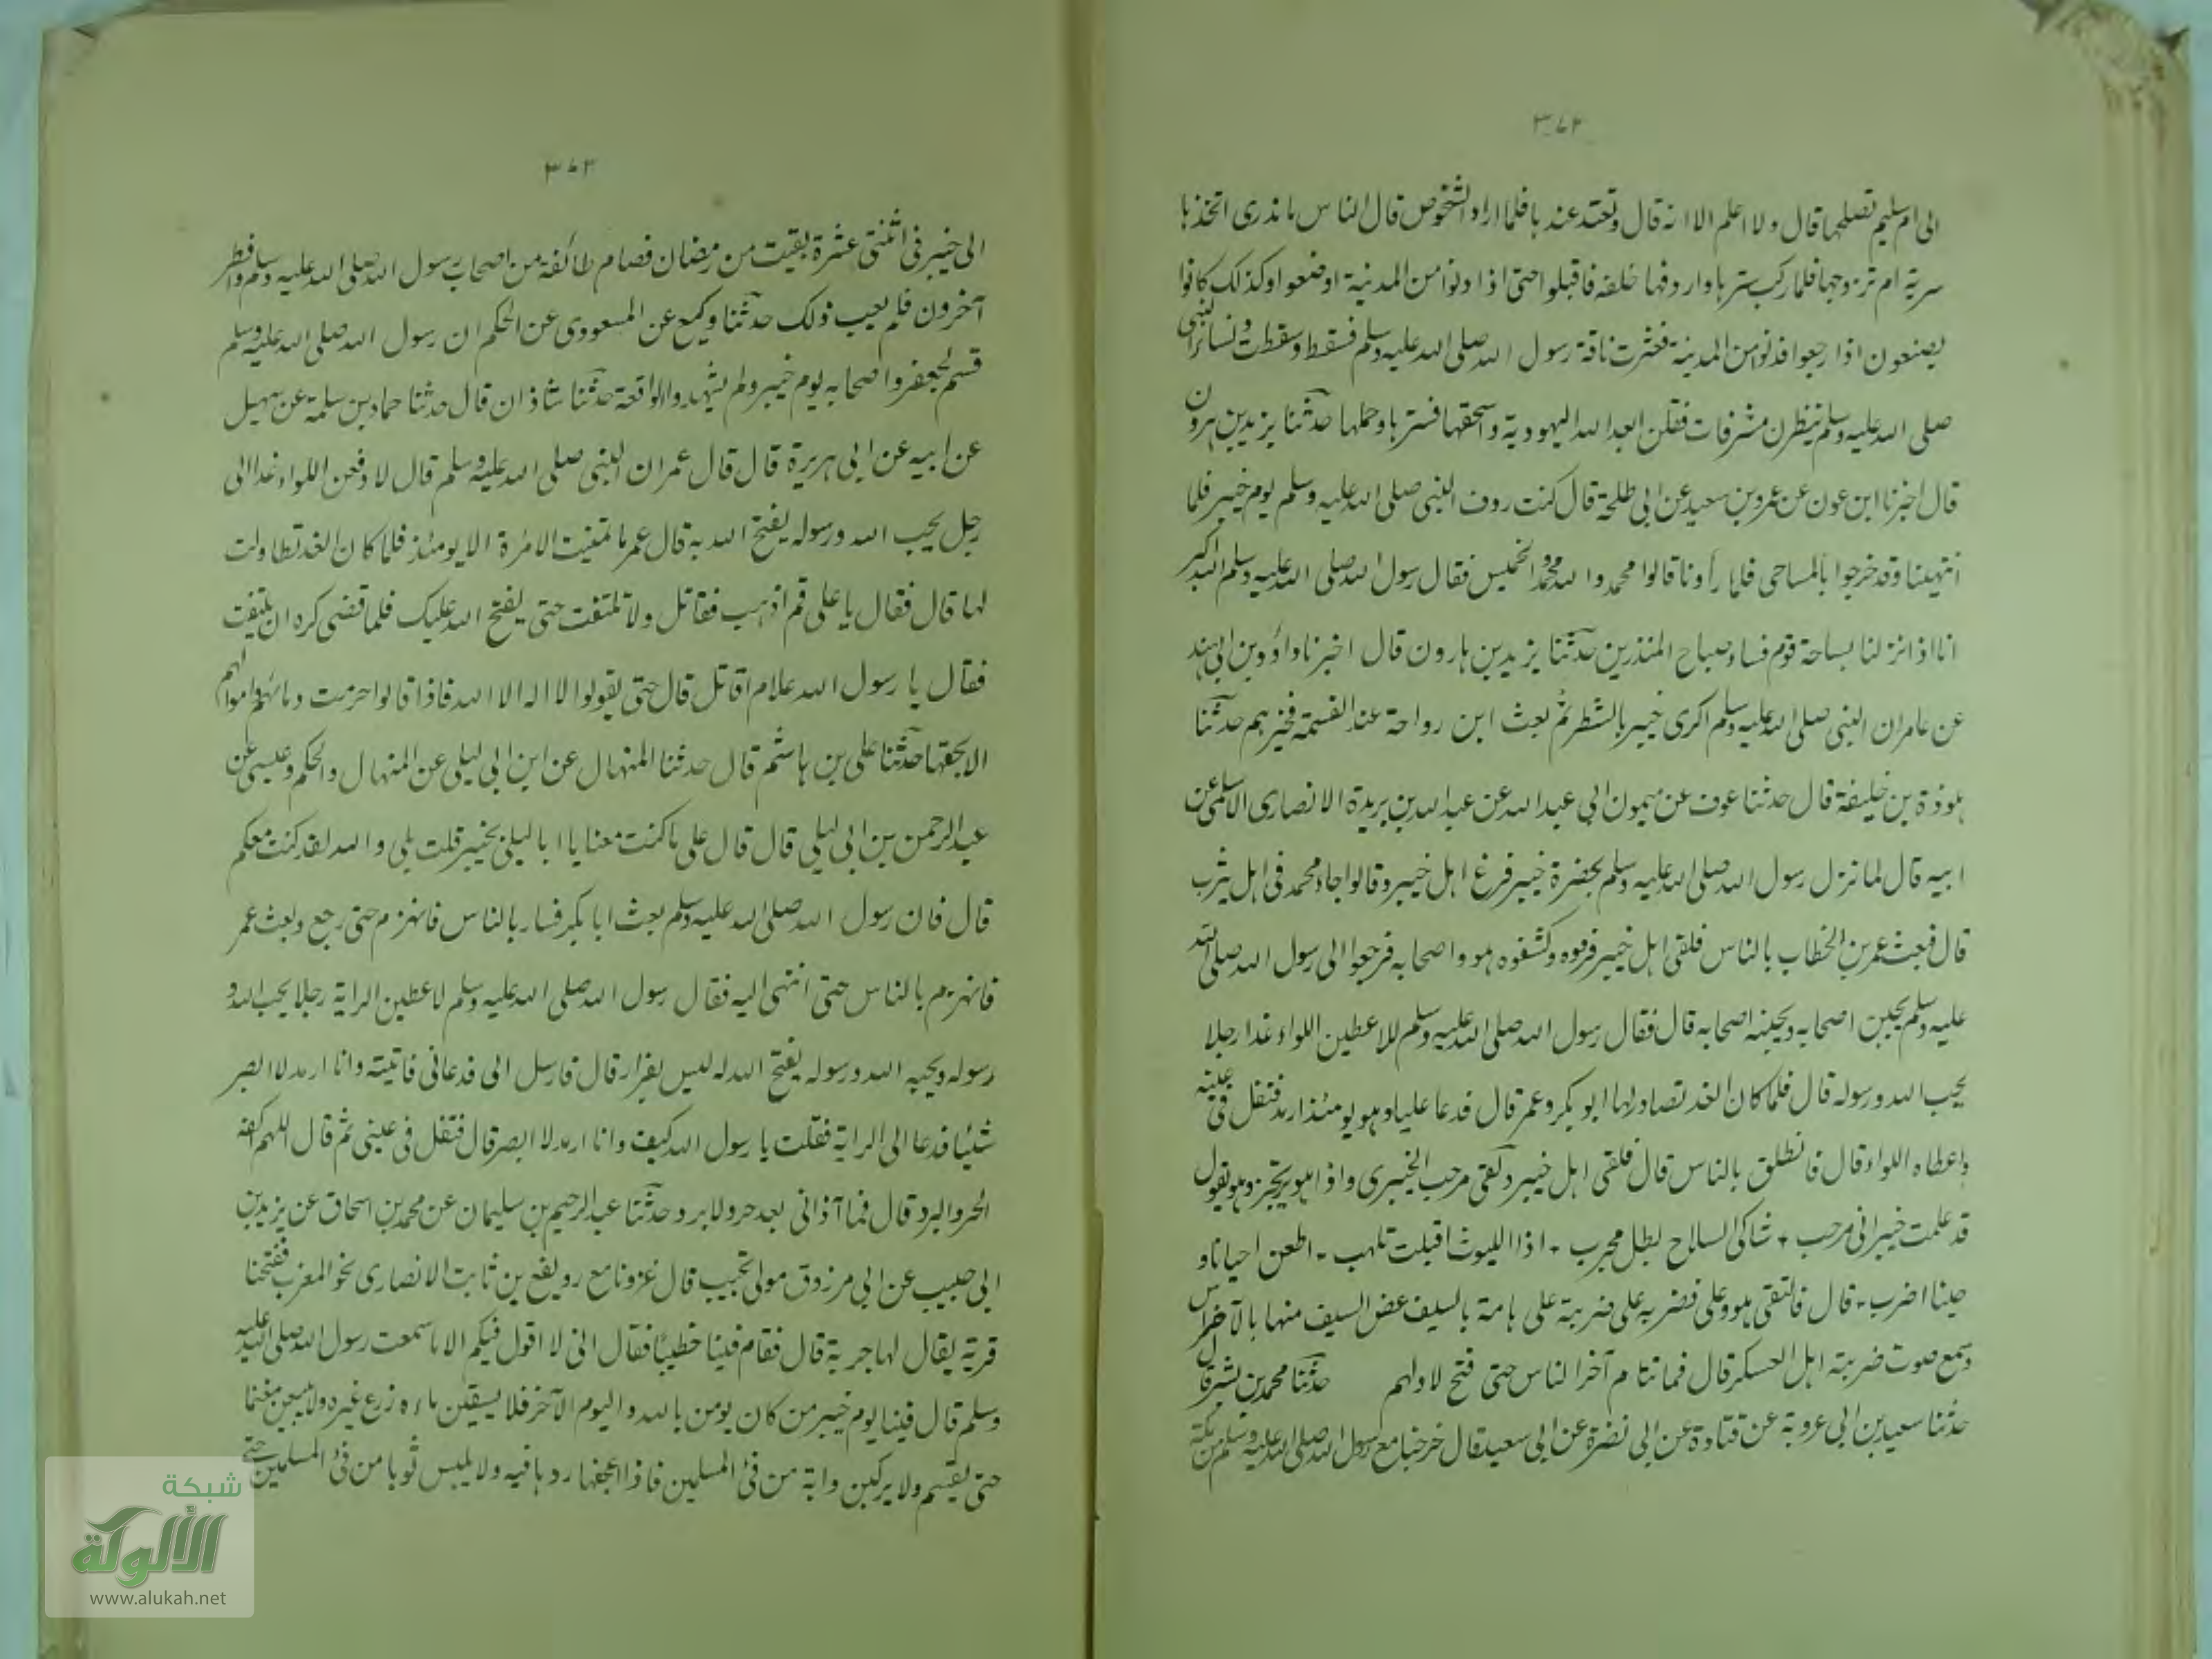 ٣٧٢
الى ام سليم تصلحها قال ولا اعلم الا انه قال وتعتد عندها فلما اراد الشخوص قال الناس ما ندرى اتخذها
سرية ام تزوجها فلما ركب سترها واردفها خلفه فاقبلوا حتى اذا دنوا من المدينة اوضعوا وكذلك كانوا
يصنعون اذا رجعوا فدنوا من المدينة فعثرت ناقة رسول الله صلى الله عليه وسلم فسقط وسقطت ونساء النبى
صلى الله عليه وسلم ينظرن مشرفات فقلن ابعد الله اليهودية واسحقها فسترها وحملها حدثنا يزيد بن هرون
قال اخبرنا ابن عون عن عمرو بن سعيد عن ابى طلحة قال كنت ردف النبى صلى الله عليه وسلم يوم خيبر فلما
انتهينا وقد خرجوا بالمساحى فلما رأونا قالوا محمد والله محمد والخميس فقال رسول الله صلى الله عليه وسلم الله اكبر
انا اذا نزلنا بساحة قوم فساء صباح المنذرين حدثنا يزيد بن هارون قال اخبرنا داؤد بن ابى هند
عن عامر ان النبى صلى الله عليه وسلم اكرى خيبر بالشطر ثم بعث ابن رواحة عند القسمة فخيرهم حدثنا
هوذة بن خليفة قال حدثنا عوف عن ميمون ابى عبد الله عن عبد الله بن بريدة الانصارى الاسلمى عن
ابيه قال لما نزل رسول الله صلى الله عليه وسلم بحضرة خيبر فزع اهل خيبر وقالوا جاء محمد فى اهل يثرب
قال فبعث عمر بن الخطاب بالناس فلقى اهل خيبر فردوه وكشفوه هو واصحابه فرجعوا الى رسول الله صلى الله
عليه وسلم يجبن اصحابه ويجبنه اصحابه قال فقال رسول الله صلى الله عليه وسلم لاعطين اللواء غدا رجلا
يحب الله ورسوله قال فلما كان الغد تصادر لها ابو بكر وعمر قال فدعا عليا وهو يومئذ ارمد فتفل فى عينه
واعطاه اللواء قال فانطلق بالناس قال فلقى اهل خيبر ولقى مرحب الخيبرى واذا هو يرتجز وهو يقول
قد علمت خيبر انى مرحب ٭ شاكى السلاح بطل مجرب ٭ اذا الليوث اقبلت تلهب ٭ اطعن احيانا و
حينا اضرب ٭ قال فالتقى هو وعلى فضربه على ضربة على هامة بالسيف عض السيف منها بالاضراس
وسمع صوت ضربته اهل العسكر قال فما تتام آخر الناس حتى فتح لاولهم حدثنا محمد بن بشر قال
حدثنا سعيد بن ابى عروبة عن قتادة عن ابى نضرة عن ابى سعيد قال خرجنا مع رسول الله صلى الله عليه وسلم من مكة
٣٧٣
الى خيبر فى اثنتى عشرة بقيت من رمضان فصام طائفة من اصحاب رسول الله صلى الله عليه وسلم وافطر
آخرون فلم يعب ذلك حدثنا وكيع عن المسعودى عن الحكم ان رسول الله صلى الله عليه وسلم
قسم لجعفر واصحابه يوم خيبر ولم يشهدوا الواقعة حدثنا شاذان قال حدثنا حماد بن سلمة عن سهيل
عن ابيه عن ابى هريرة قال قال عمر ان النبى صلى الله عليه وسلم قال لادفعن اللواء غدا الى
رجل يحب الله ورسوله يفتح الله به قال عمر ما تمنيت الامرة الا يومئذ فلما كان الغد تطاولت
لها قال فقال يا على قم اذهب فقاتل ولا تلتفت حتى يفتح الله عليك فلما قضى كره ان يلتفت
فقال يا رسول الله علام اقاتل قال حتى يقولوا لا اله الا الله فاذا قالوا حرمت دمائهم واموالهم
الا بحقها حدثنا على بن هاشم قال حدثنا المنهال عن ابن ابى ليلى عن المنهال والحكم وعيسى عن
عبد الرحمن بن ابى ليلى قال قال على ما كنت معنا يا ابا ليلى بخيبر قلت بلى والله لقد كنت معكم
قال فان رسول الله صلى الله عليه وسلم بعث ابا بكر فسار بالناس فانهزم حتى رجع وبعث عمر
فانهزم بالناس حتى انتهى اليه فقال رسول الله صلى الله عليه وسلم لاعطين الراية رجلا يحب الله و
رسوله ويحبه الله ورسوله يفتح الله له ليس بفرار قال فارسل الى فدعانى فاتيته وانا ارمد لا ابصر
شيئا فدعا الى الراية فقلت يا رسول الله كيف وانا ارمد لا ابصر قال فتفل فى عينى ثم قال اللهم اكفه
الحر والبرد قال فما آذانى بعد حر ولا برد حدثنا عبد الرحيم بن سليمان عن محمد بن اسحاق عن يزيد بن
ابى حبيب عن ابى مرزوق مولى تجيب قال غزونا مع رويفع بن ثابت الانصارى نحو المغرب ففتحنا
قرية يقال لها جربة قال فقام فينا خطيبا فقال انى لا اقول فيكم الا ما سمعت رسول الله صلى الله عليه
وسلم قال فينا يوم خيبر من كان يومن بالله واليوم الآخر فلا يسقين ماءه زرع غيره ولا يبيعن مغنما
حتى يقسم ولا يركبن دابة من فئ المسلمين فاذا اعجفها ردها فيه ولا يلبس ثوبا من فئ المسلمين حتى
شبكة
الألوكة
www.alukah.net